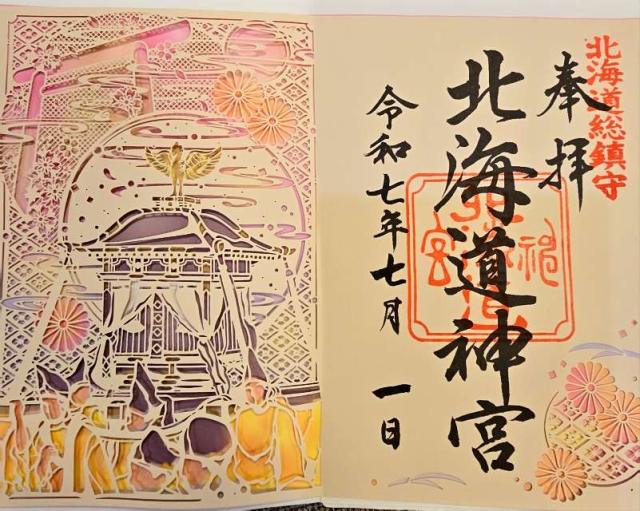 北海道総鎮守
奉拝
北海道神宮
令和七年七月一日